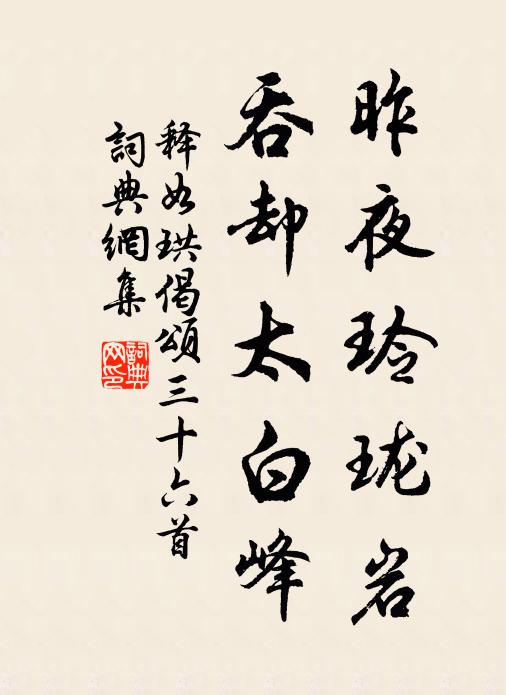 昨夜玲珑岩
吞却太白峰
释如珙偈颂三十六首
詞典網集
詞典
网印